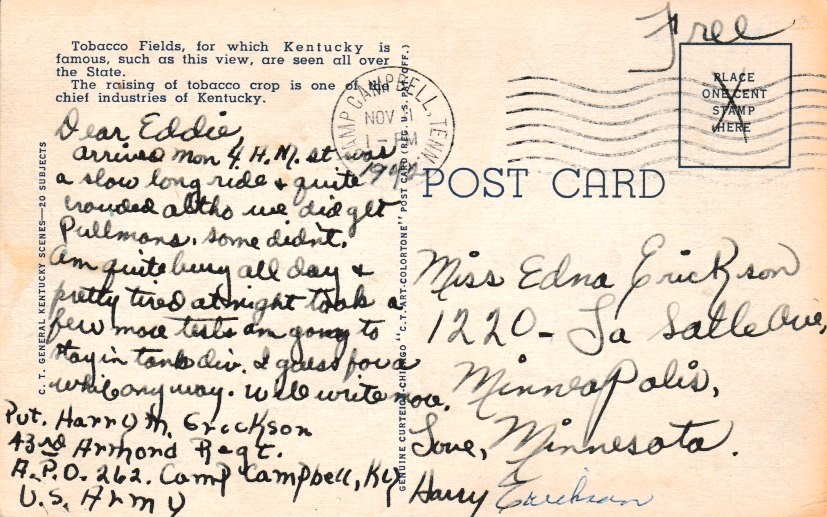 Free
Tobacco Fields, for which Kentucky is
famous, such as this view, are seen all over
the State.
The raising of tobacco crop is one of the
chief industries of Kentucky.
CAMP CAMPBELL, TENN.
NOV
1 - PM
1942
PLACE
ONE CENT
STAMP
HERE
POST CARD
Dear Eddie,
arrived Mon 4. A.M. it was
a slow long ride & quite
crowded altho we did get
Pullmans. some didn't.
am quite busy all day &
pretty tired at night took a
few more tests am going to
stay in tank div. I guess for a
while any way. Will write more.
Love,
Harry Erickson
Pvt. Harry M. Erickson
43rd Armord Regt.
A.P.O. 262. Camp Campbell, Ky
U.S. Army
Miss Edna Erickson
1220 - La Salle Ave,
Minneapolis,
Minnesota.
C. T. GENERAL KENTUCKY SCENES—20 SUBJECTS
GENUINE CURTEICH-CHICAGO "C. T. ART-COLORTONE" POST CARD (REG. U. S. PAT. OFF.)